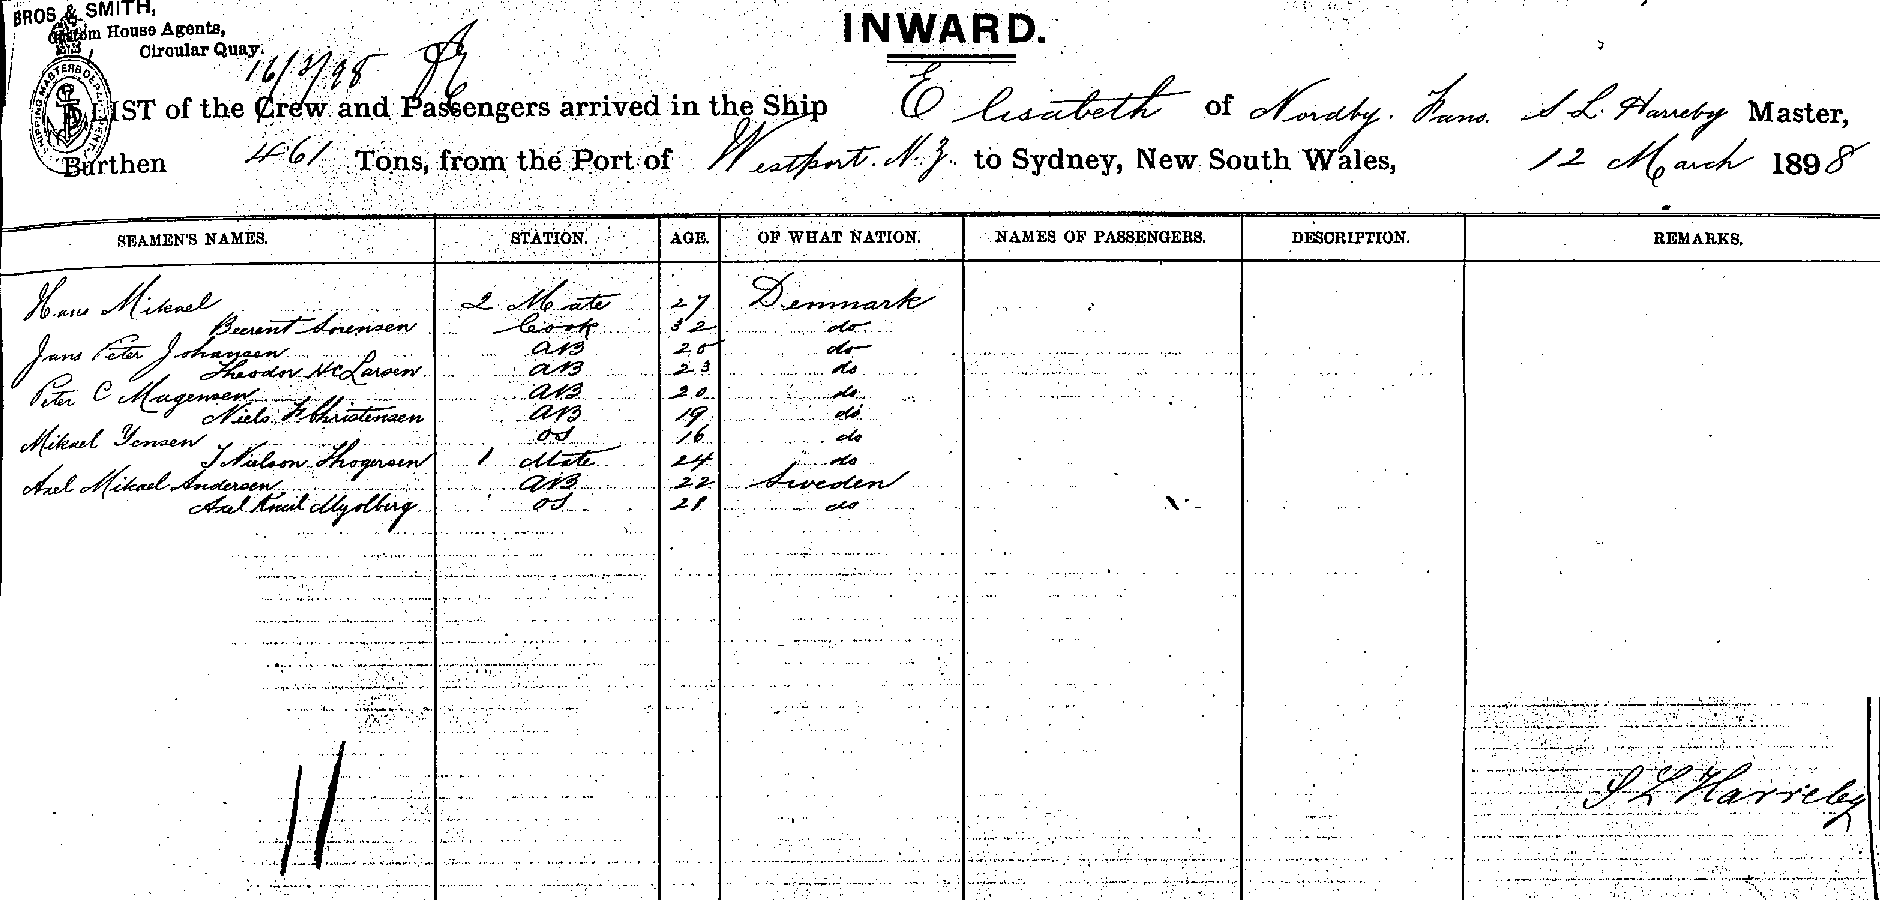 BROS & SMITH,
Custom House Agents,
Circular Quay.
16/3/98
INWARD.
A LIST of the Crew and Passengers arrived in the Ship Elisabeth of Nordby. Fano. S L Harreby Master,
Burthen 461 Tons, from the Port of Westport. N.Z. to Sydney, New South Wales, 12 March 1898
SEAMEN'S NAMES. STATION. AGE. OF WHAT NATION. NAMES OF PASSENGERS. DESCRIPTION. REMARKS.
Hans Mikael 2 Mate 27 Denmark
Berent Sorensen Cook 32 do
Jans Peter Johansen AB 25 do
Theodor HC Larsen AB 23 do
Peter C Magensen AB 20 do
Niels F Christensen AB 19 do
Mikael Yensen OS 16 do
J Nielson Thogersen 1 Mate 24 do
Axel Mikael Andersen AB 22 Sweden
Axel Knut Myolberg OS 21 do
11
S L Harreby